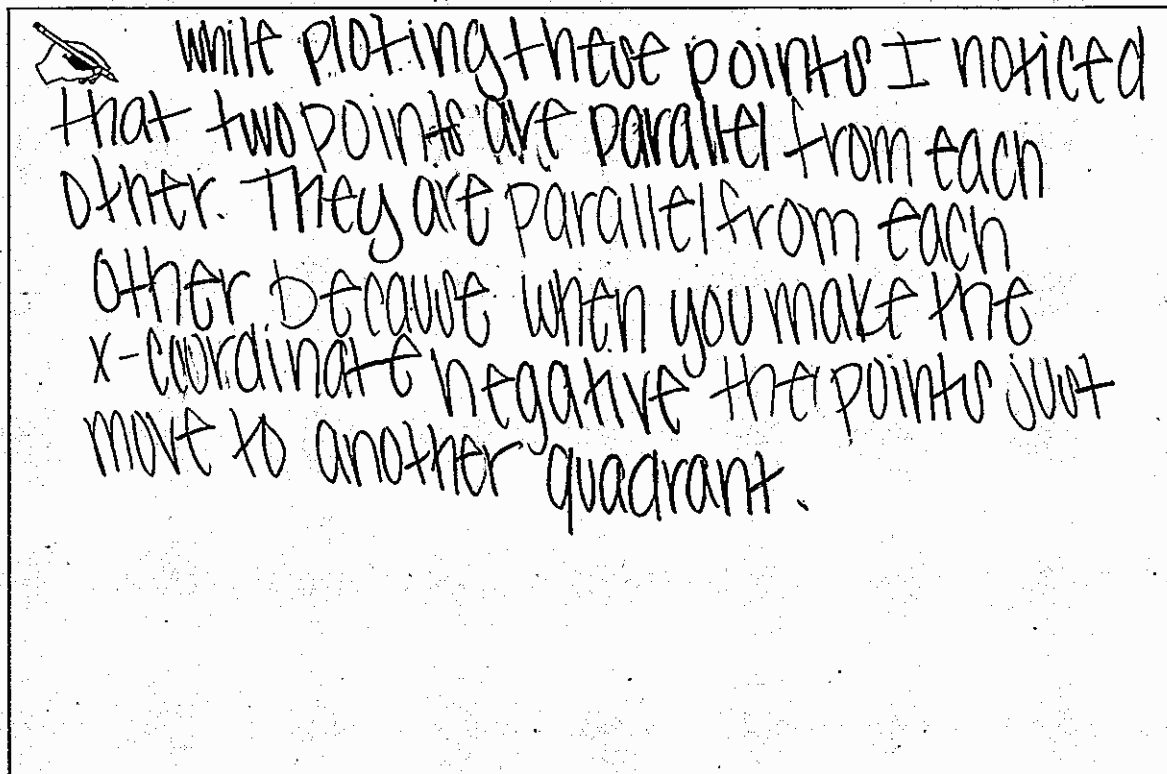 while ploting these points I noticed
that two points are parallel from each
other. They are parallel from each
other because when you make the
x-coordinate negative the points just
move to another quadrant.